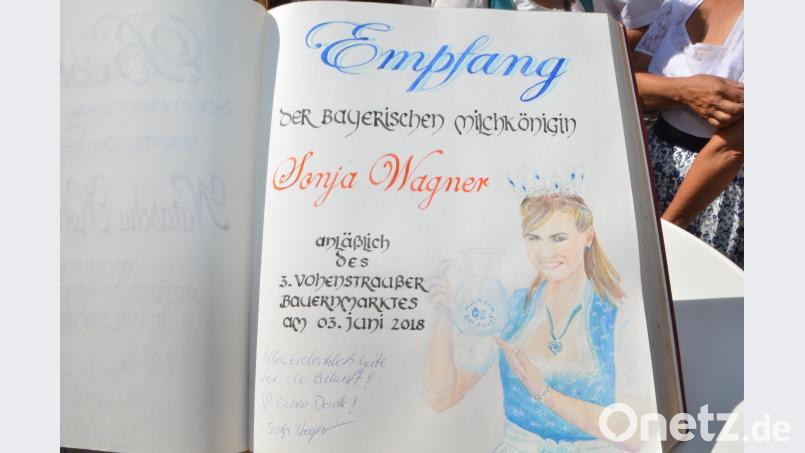 Empfang
der Bayerischen Milchkönigin
Sonja Wagner
anläßlich
des
3. Vohenstraußer
Bauernmarktes
am 03. Juni 2018
Gute
für die Zukunft!
Dank!
Sonja Wagner
Onetz.de